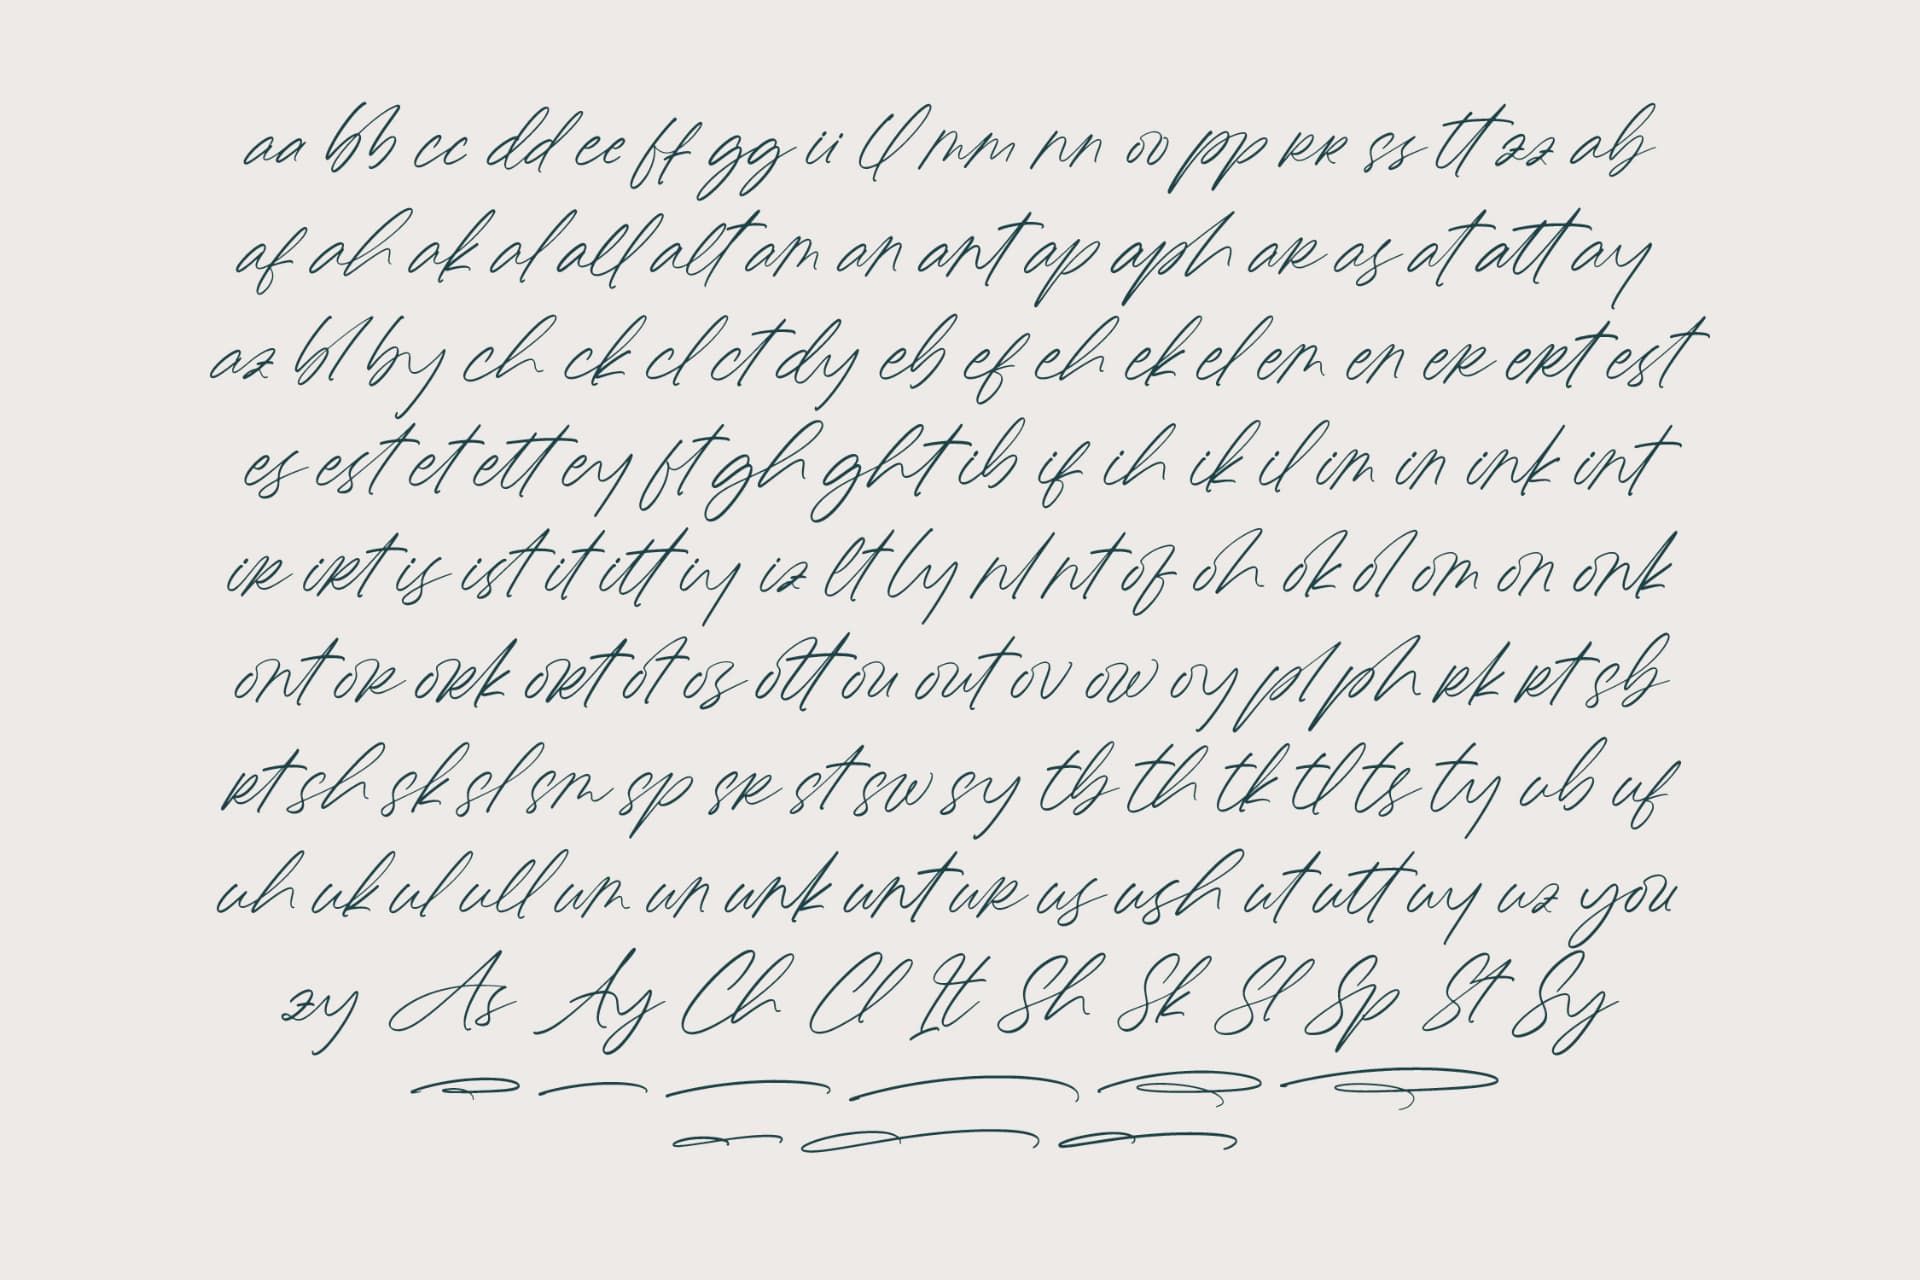 aa bb cc dd ee ff gg ii ll mm nn oo pp rr ss tt zz ab
af ah ak al all alt am an ant ap aph ar as at att ay
az bl by ch ck cl ct dy eb ef eh ek el em en er ert est
es est et ett ey ft gh ght ib if ih ik il im in ink int
ir irt is ist it itt iy iz lt ly nl nt of oh ok ol om on onk
ont or ork ort ot os ott ou out ov ow oy pl ph rk rt sb
rt sh sk sl sm sp sr st sw sy tb th tk tl ts ty ub uf
uh uk ul ull um un unk unt ur us ush ut utt uy uz you
zy As Ay Ch Cl It Sh Sk Sl Sp St Sy